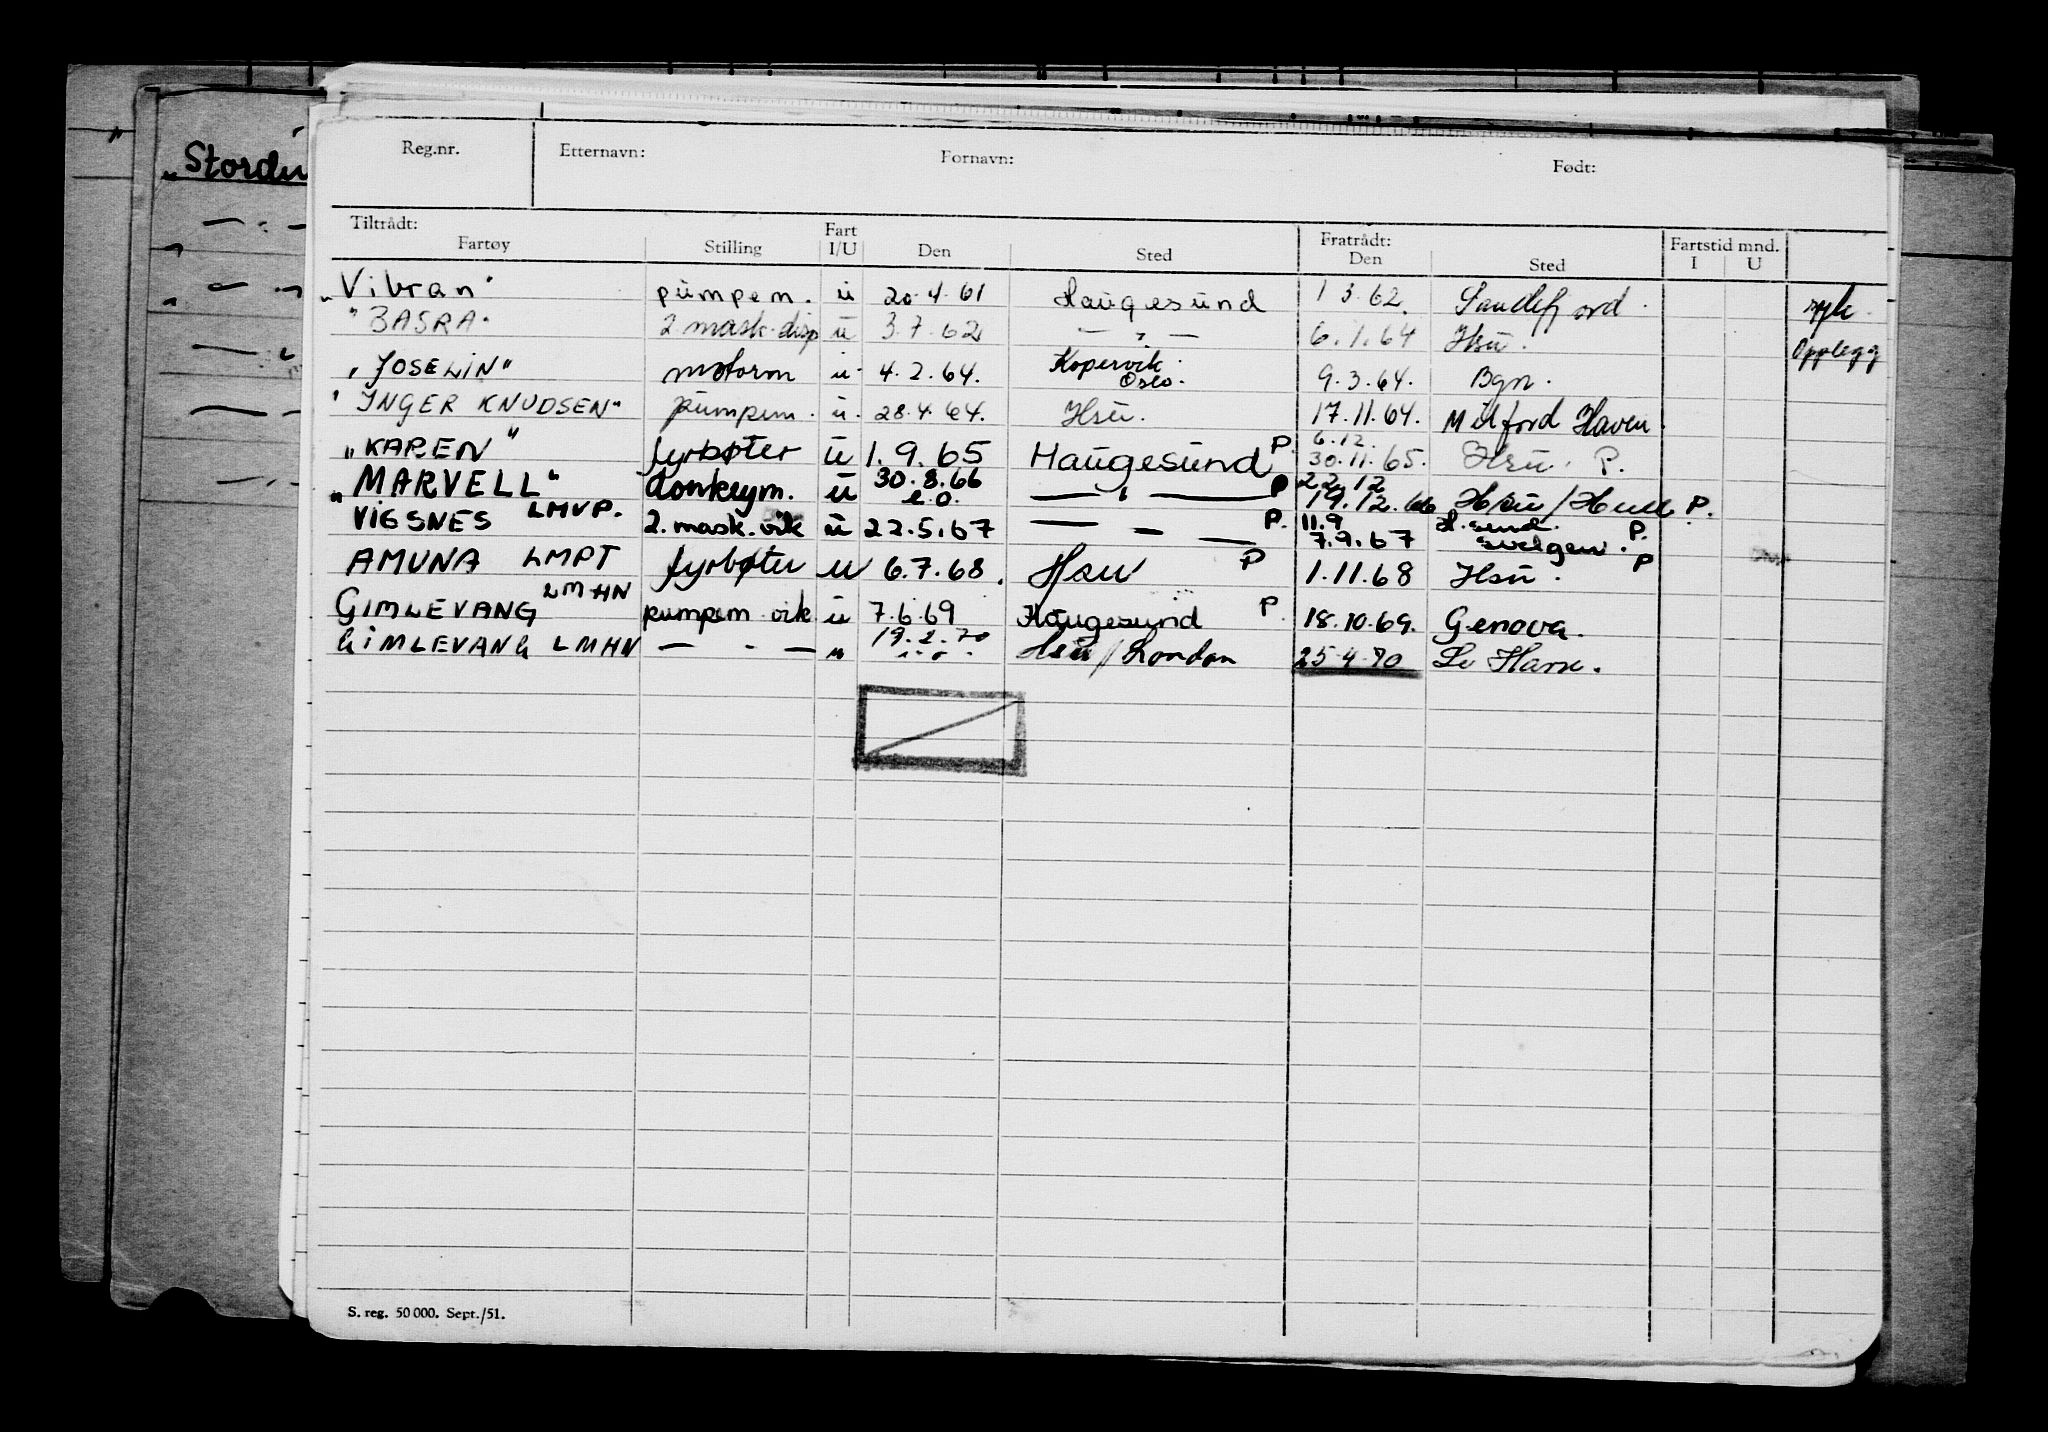 "Stordu
Reg.nr. Etternavn: Fornavn: Født:
Tiltrådt: Fartøy Stilling Fart I/U Den Sted Fratrådt: Den Sted Fartstid mnd. I U
"Vibran" pumpem. ü 20.4.61 Haugesund 1 3.62. Sandefjord. syk.
"BASRA" 2. mask. disp ü 3.7.62 — " — 6.1.64 Hsü. Opplegg
"JOSELIN" motorm ü 4.2.64. Kopervik. Oslo. 9.3.64. Bgn.
"INGER KNUDSEN" pumpem. ü. 28.4.64. Hsü. 17.11.64. Milford Haven.
"KAREN" fyrbøter ü 1.9.65 Haugesund P. 6.12. 30.11.65. Hsü. P.
"MARVELL" donkeym. ü 30.8.66 e.o. — " — P 22.12 19.12.66 Hsü/Hull P.
VIGSNES LMVP. 2. mask. vik ü 22.5.67 — - — P. 11.9 7.9.67 H.sund. P. Svelgen. P
AMUNA LMPT fyrbøter u 6.7.68. Hsu P 1.11.68 Hsü.
GIMLEVANG LMHN pumpem. vik ü 7.6.69 Haugesund P. 18.10.69. Genova.
GIMLEVANG LMHN — - — u 19.2.70 Hsü/London 25.4.70 Le Havre.
S. reg. 50 000. Sept./51.